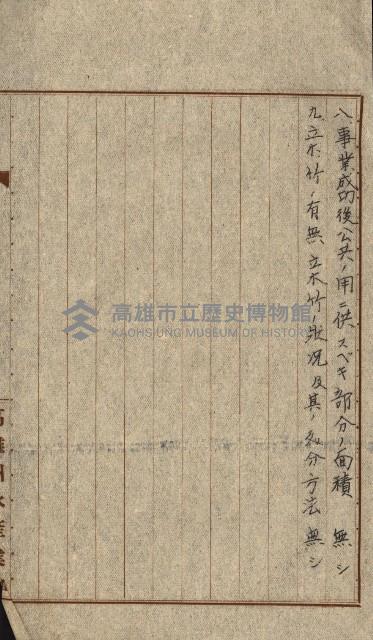 八、事業成功後公共ノ用ニ供スベキ部分ノ面積 無シ
九、立木竹ノ有無 立木竹ノ狀況及其ノ処分方法 無シ
高雄市立歷史博物館
KAOHSIUNG MUSEUM OF HISTORY